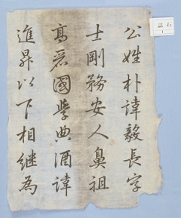 公姓朴諱毅長字
士剛務安人鼻祖
高麗國學典酒諱
進昇以下相継為